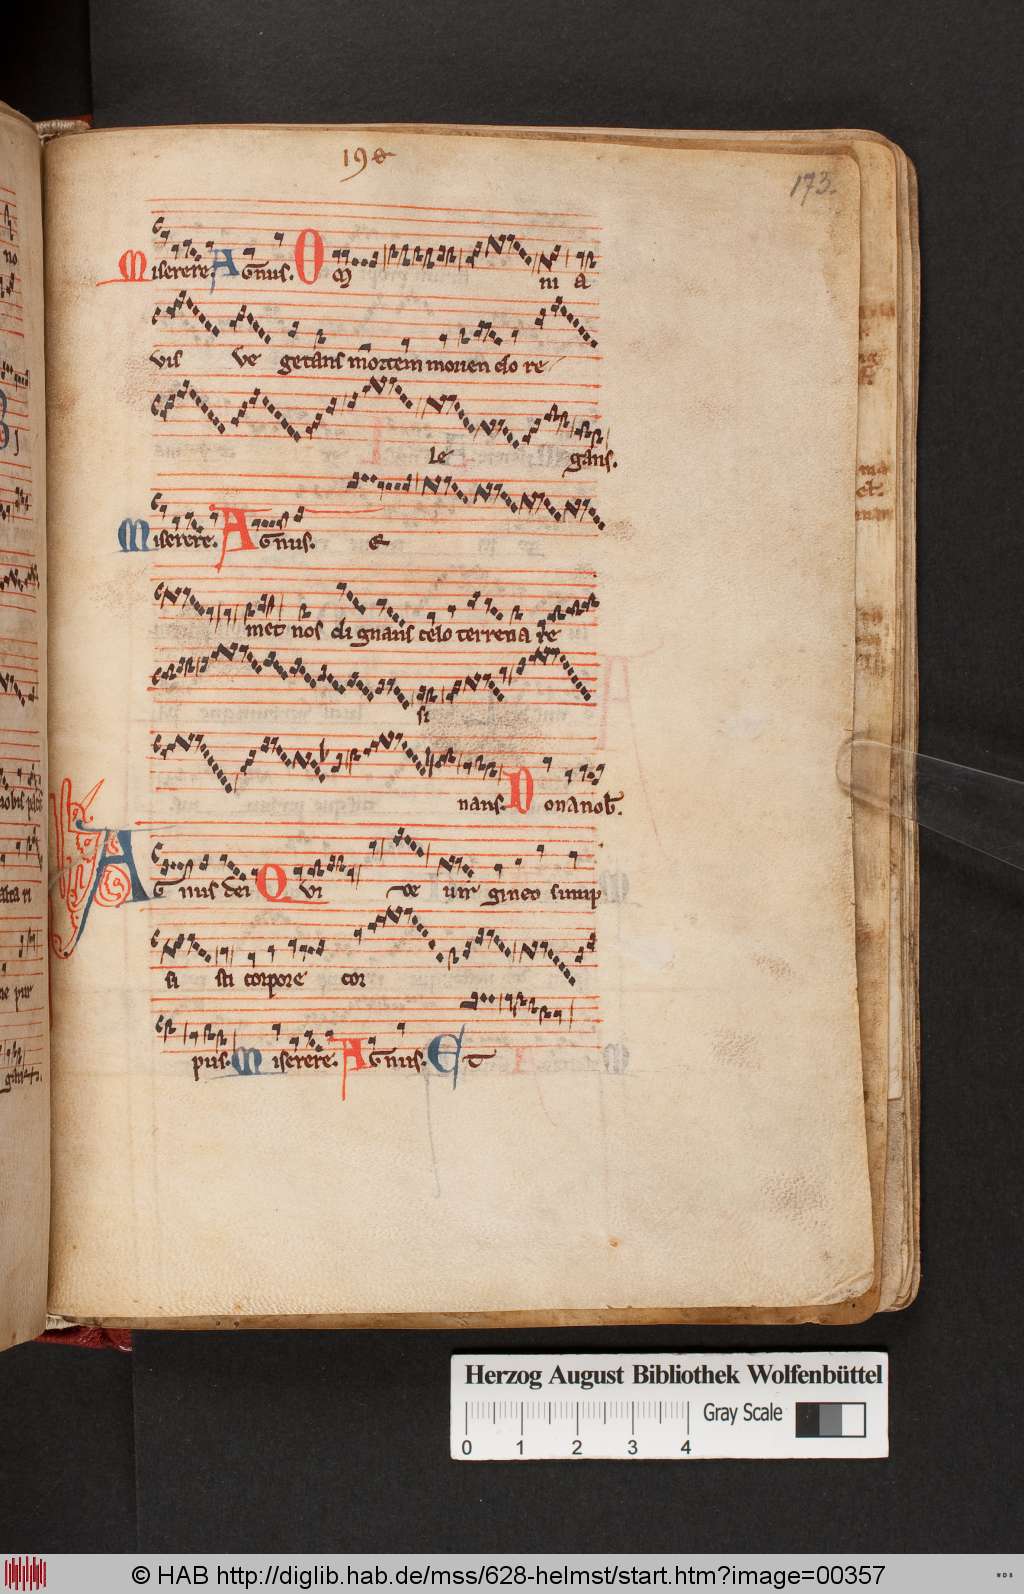 198
173.
Miserere. Agnus. Om ni a
vis ve getans mortem morien do re
le gans.
Miserere. Agnus. E
met nos di gnans celo terrena re
si
nans. Dona nob.
Agnus dei Qui ve vir gineo sump
si sti corpore cor
pus. Miserere. Agnus. Et
Herzog August Bibliothek Wolfenbüttel
Gray Scale
0 1 2 3 4
© HAB http://diglib.hab.de/mss/628-helmst/start.htm?image=00357